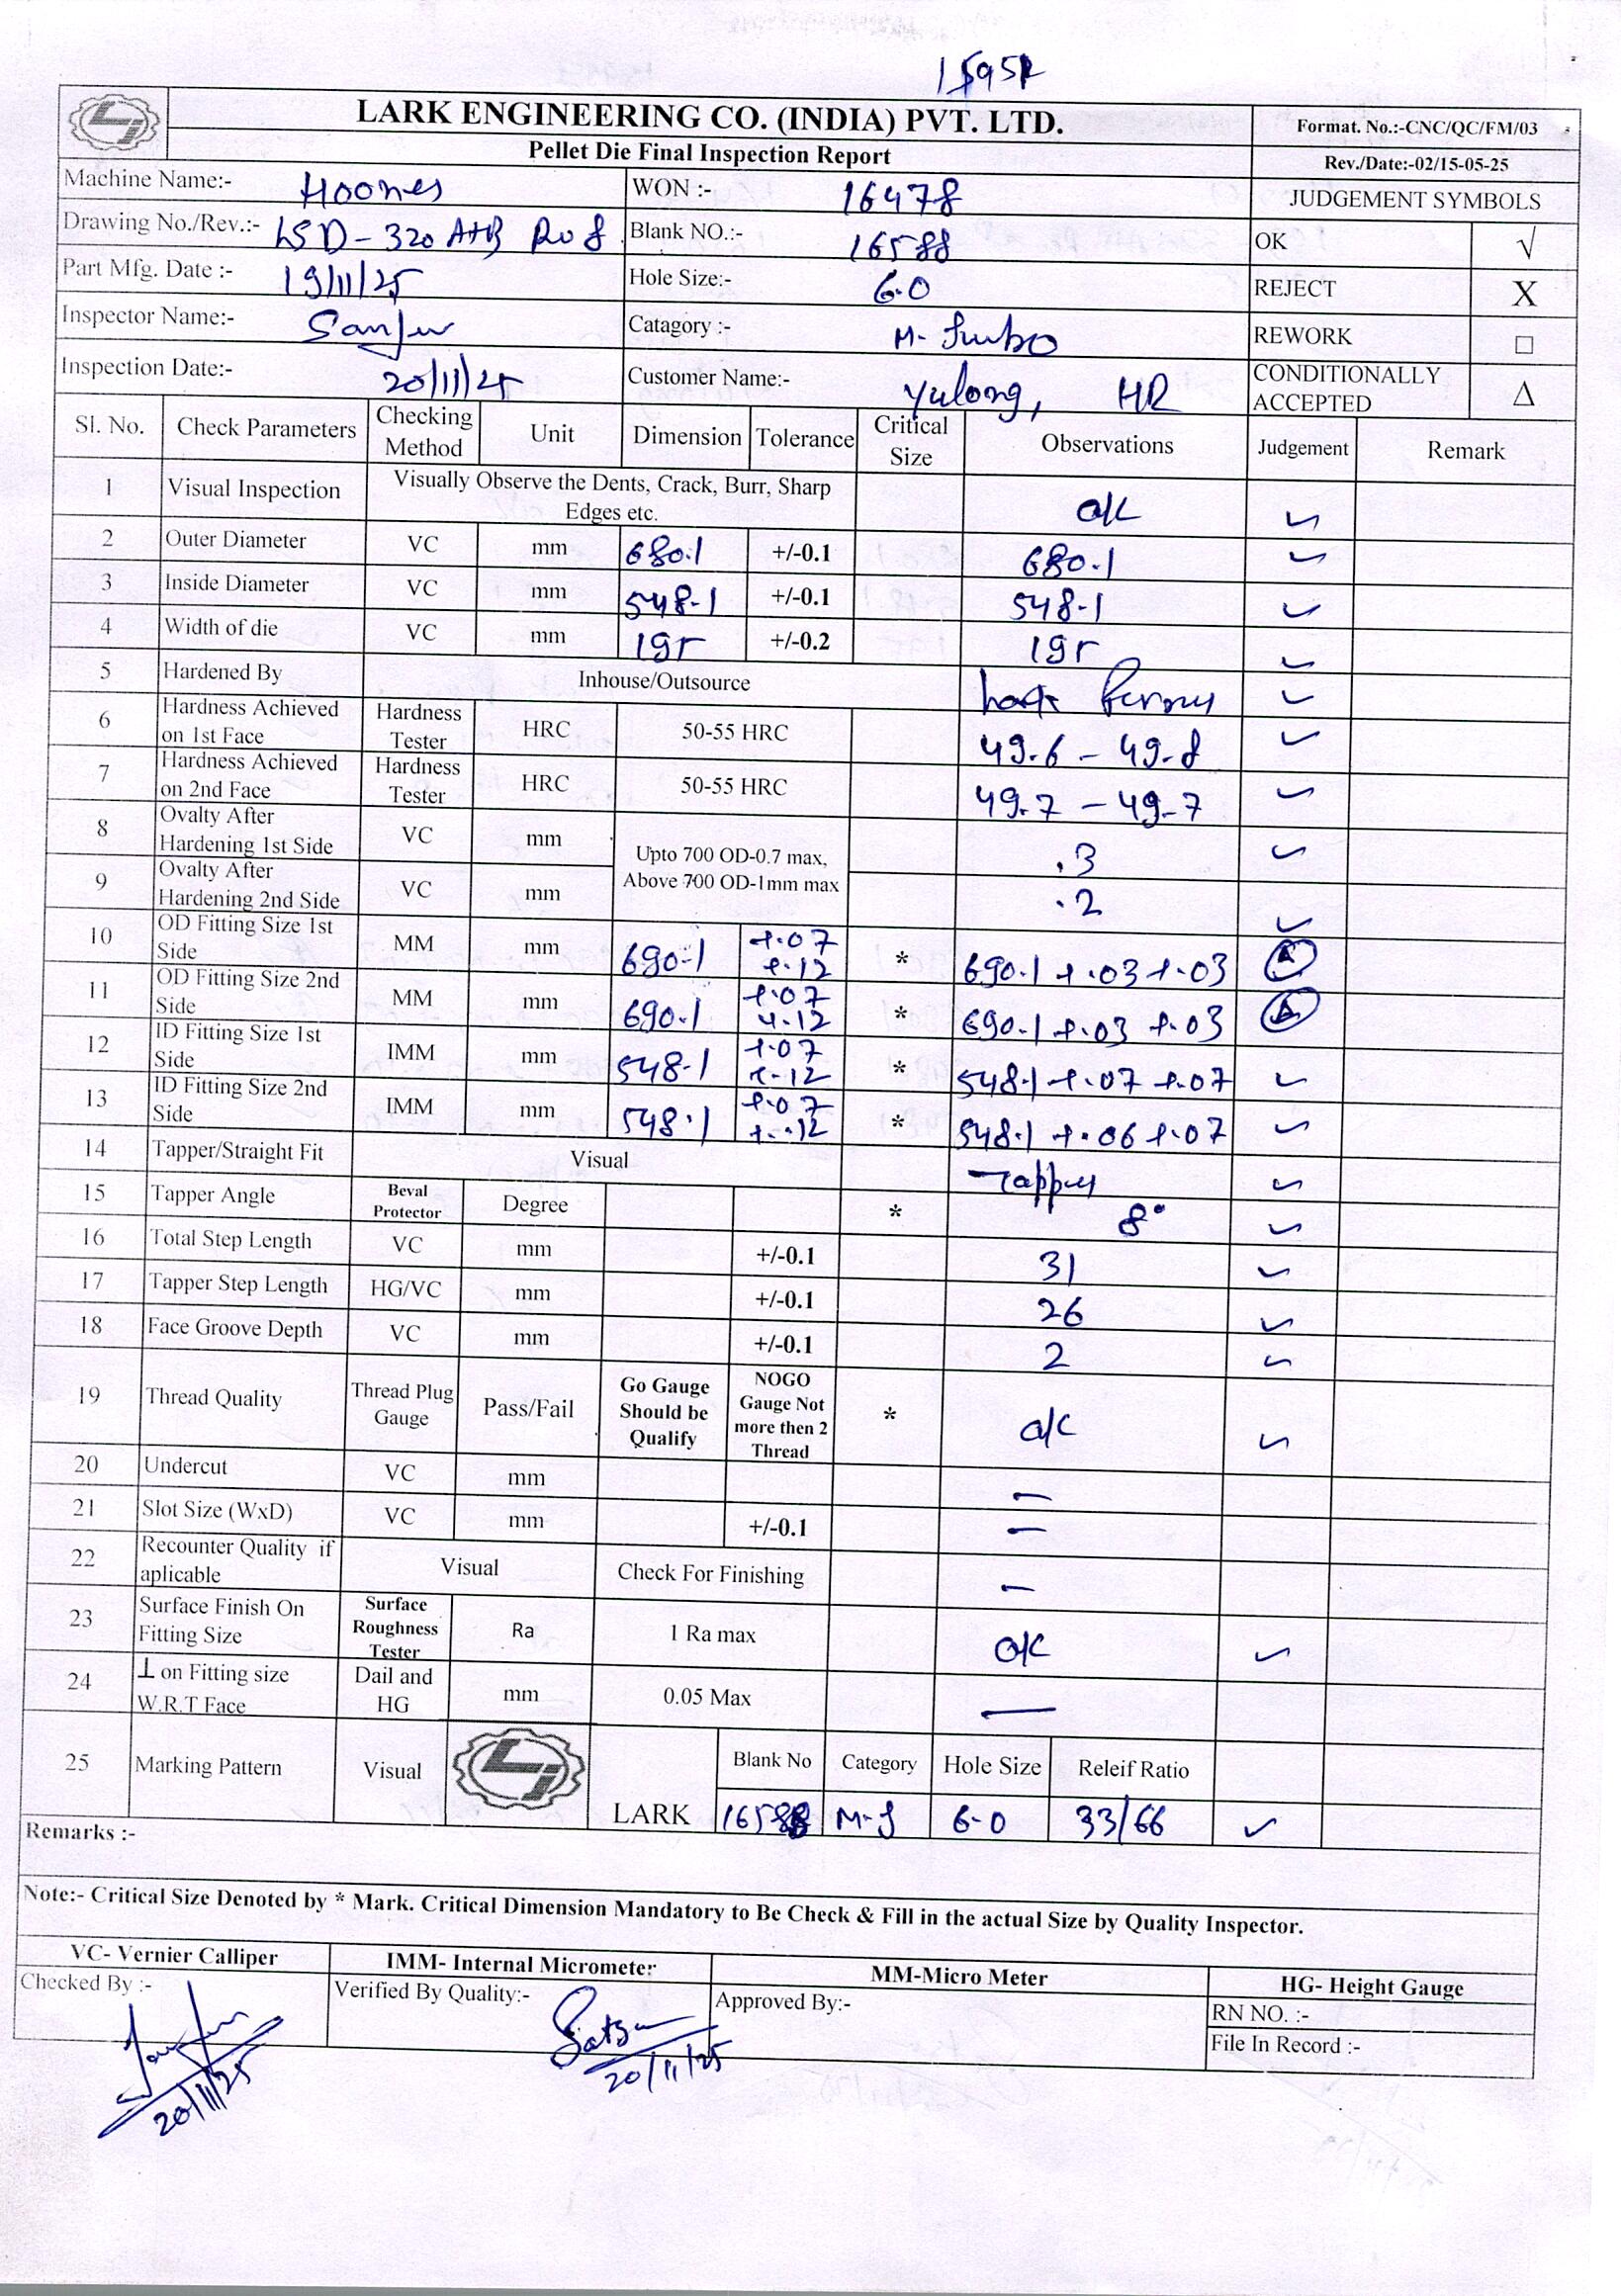 1595R
LARK ENGINEERING CO. (INDIA) PVT. LTD.
Format. No.:-CNC/QC/FM/03
Pellet Die Final Inspection Report
Rev./Date:-02/15-05-25
Machine Name:- Hoones WON :- 16478 JUDGEMENT SYMBOLS
Drawing No./Rev.:- LSD-320 A+B R08 Blank NO.:- 16588 OK √
Part Mfg. Date :- 19/11/25 Hole Size:- 6.0 REJECT X
Inspector Name:- Sanju Catagory :- M. Turbo REWORK □
Inspection Date:- 20/11/25 Customer Name:- Yulong, HR CONDITIONALLY ACCEPTED Δ
Sl. No. Check Parameters Checking Method Unit Dimension Tolerance Critical Size Observations Judgement Remark
1 Visual Inspection Visually Observe the Dents, Crack, Burr, Sharp Edges etc. O/K ✓
2 Outer Diameter VC mm 680.1 +/-0.1 680.1 ✓
3 Inside Diameter VC mm 548.1 +/-0.1 548.1 ✓
4 Width of die VC mm 195 +/-0.2 195 ✓
5 Hardened By Inhouse/Outsource ✓
6 Hardness Achieved on 1st Face Hardness Tester HRC 50-55 HRC 49.6 - 49.8 ✓
7 Hardness Achieved on 2nd Face Hardness Tester HRC 50-55 HRC 49.7 - 49.7 ✓
8 Ovalty After Hardening 1st Side VC mm Upto 700 OD-0.7 max, Above 700 OD-1mm max .3 ✓
9 Ovalty After Hardening 2nd Side VC mm .2 ✓
10 OD Fitting Size 1st Side MM mm 690.1 +.07 +.12 * 690.1 +.03 +.03
11 OD Fitting Size 2nd Side MM mm 690.1 +.07 +.12 * 690.1 +.03 +.03
12 ID Fitting Size 1st Side IMM mm 548.1 +.07 +.12 * 548.1 +.07 +.07 ✓
13 ID Fitting Size 2nd Side IMM mm 548.1 +.07 +.12 * 548.1 +.06 +.07 ✓
14 Tapper/Straight Fit Visual Tapper ✓
15 Tapper Angle Beval Protector Degree * 8° ✓
16 Total Step Length VC mm +/-0.1 31 ✓
17 Tapper Step Length HG/VC mm +/-0.1 26 ✓
18 Face Groove Depth VC mm +/-0.1 2 ✓
19 Thread Quality Thread Plug Gauge Pass/Fail Go Gauge Should be Qualify NOGO Gauge Not more then 2 Thread * O/K ✓
20 Undercut VC mm —
21 Slot Size (WxD) VC mm +/-0.1 —
22 Recounter Quality if aplicable Visual Check For Finishing —
23 Surface Finish On Fitting Size Surface Roughness Tester Ra 1 Ra max O/K ✓
24 ⊥ on Fitting size W.R.T Face Dail and HG mm 0.05 Max —
25 Marking Pattern Visual LARK Blank No Category Hole Size Releif Ratio
16588 M-J 6.0 33/66 ✓
Remarks :-
Note:- Critical Size Denoted by * Mark. Critical Dimension Mandatory to Be Check & Fill in the actual Size by Quality Inspector.
VC- Vernier Calliper IMM- Internal Micrometer MM-Micro Meter HG- Height Gauge
Checked By :- Verified By Quality:- Approved By:- RN NO. :-
File In Record :-
20/11/25 20/11/25